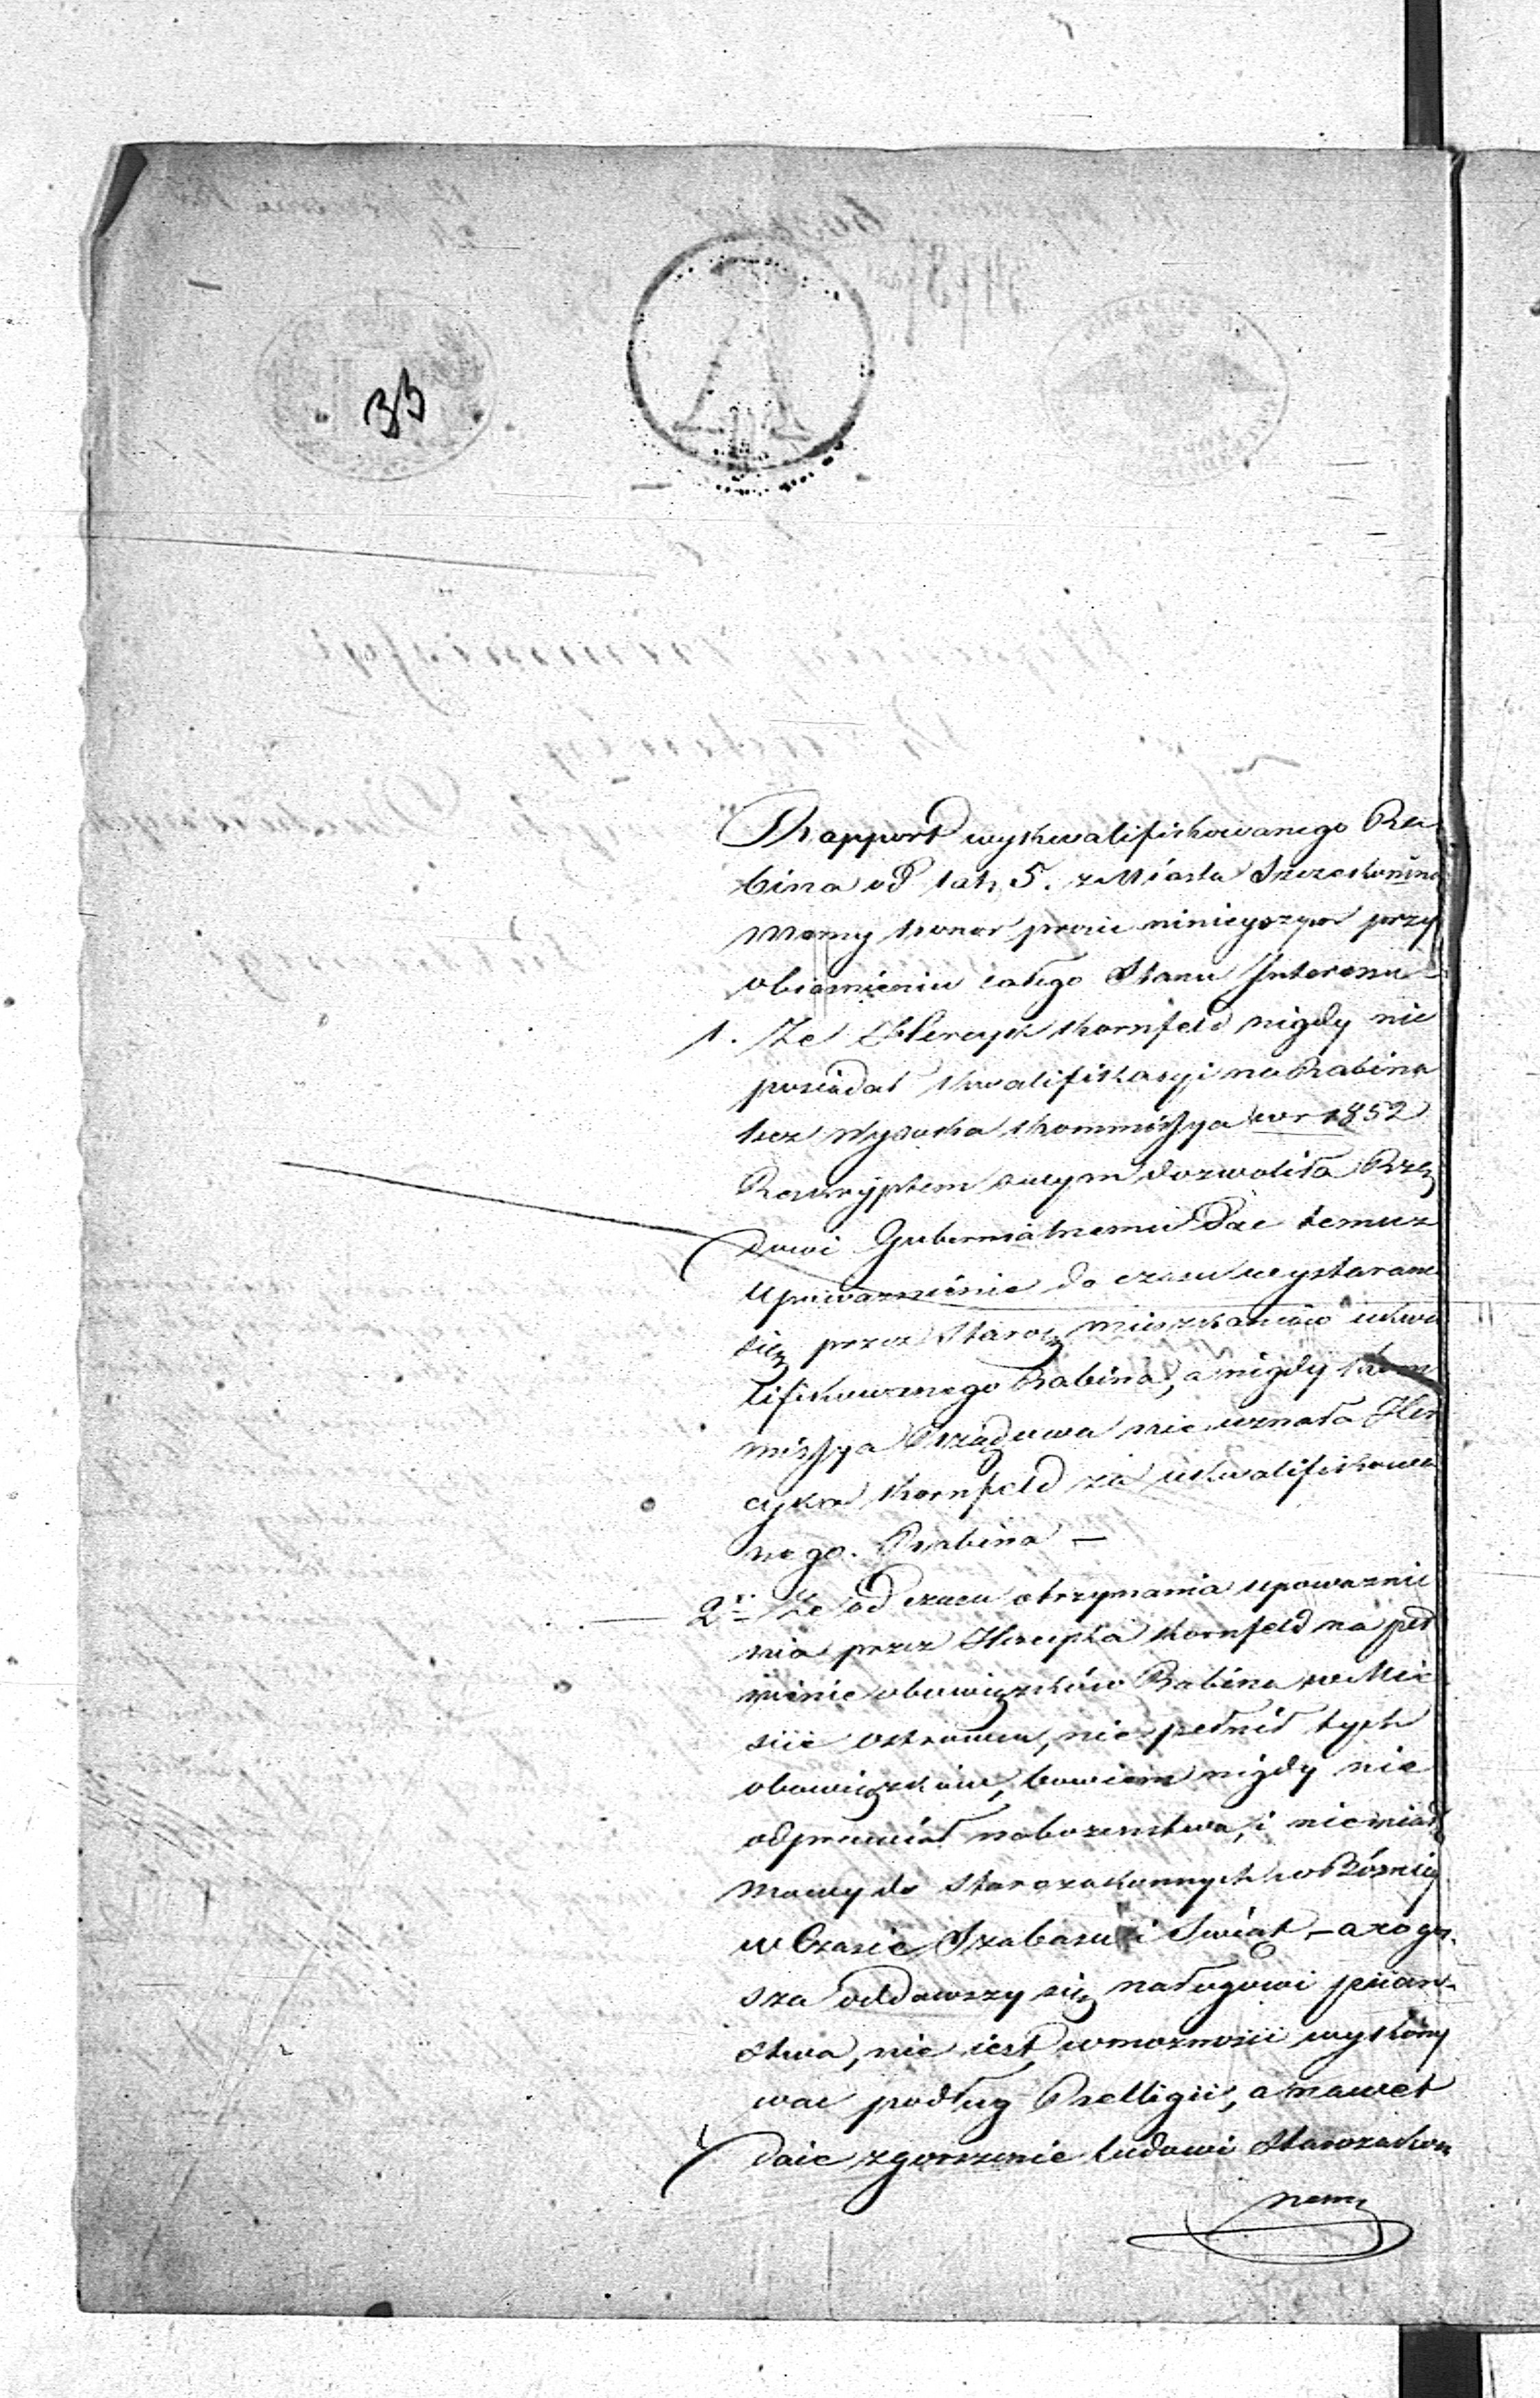 33
Rapport wykwalifikowanego Ra
bina od lat 5. z Miasta Szczekonina
mamy honor przy niniejszym przy
obiasnieniu całego Stanu Interesu
1. Że Herczyk Kornfeld nigdy nie
posiadał kwalifikacyi na Rabina
lecz Wysoka Kommissya w r 1852
Reskryptem swym dozwoliła Rzą
dowi Gubernialnemu dac temuż
upoważnienie do czasu wystarania
się przez Staroz mieszkańców ukwa
lifikowanego Rabina, a nigdy Kom
missya Rządowa nie uznała Her
cyka Kornfeld za ukwalifikowa
nego Rabina —
2. Że od czasu otrzymania upoważnie
nia przez Herczyka Kornfeld na peł
nienie obowiązków Rabina w Mie
scie Ostrowcu, nie pełnił tych
obowiązków, bowiem nigdy nie
odprawiał nabozenstwa, i nie miał
mowy do Starozakonnych w Bóźnicy
w Czasie Szabasu i Swiąt — a zogr.
sza oddawszy się nałogowi pijan
stwa, nie iest w możnosci wykony
wac podług Relligii, a nawet
daie zgorszenie ludowi Starozakon
nemu